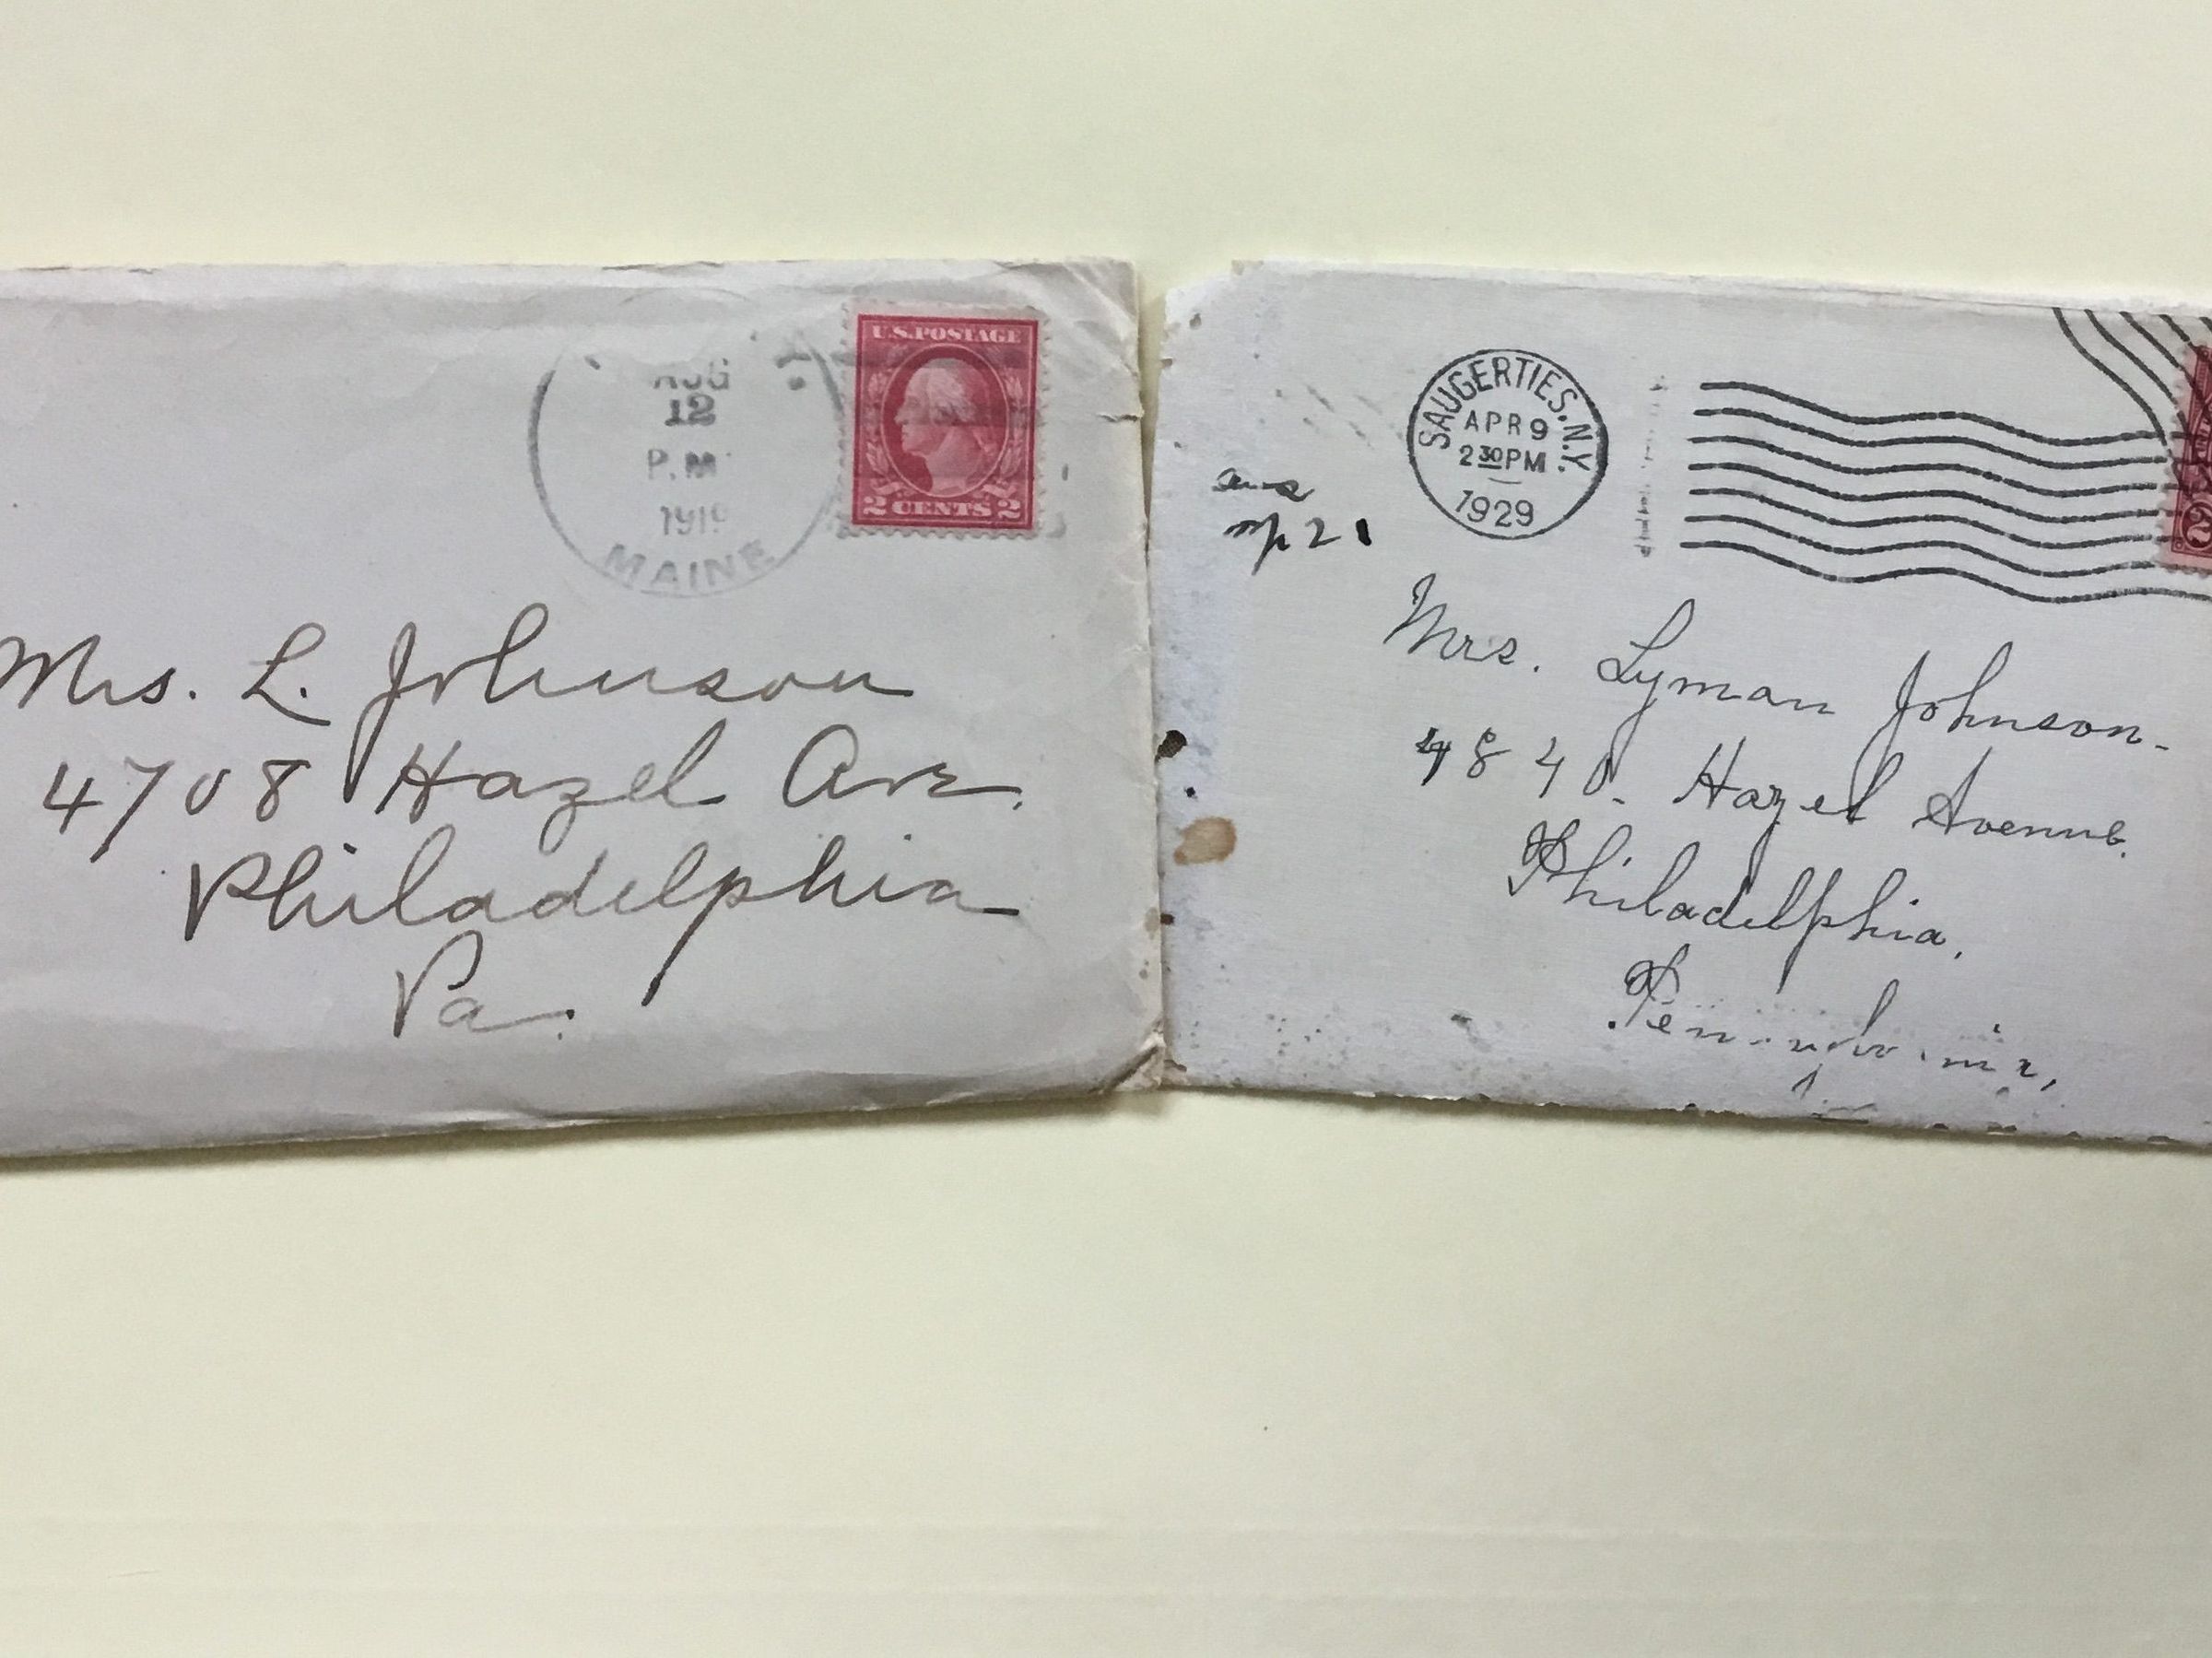 AUG
12
P.M
1919
MAINE
U.S. POSTAGE
2 CENTS 2
Mrs. L. Johnson
4708 Hazel Ave.
Philadelphia
Pa.
SAUGERTIES. N.Y.
APR 9
2 30 PM
1929
ans
21
Mrs. Lyman Johnson-
4840. Hazel Avenue.
Philadelphia,
Pennsylvania,